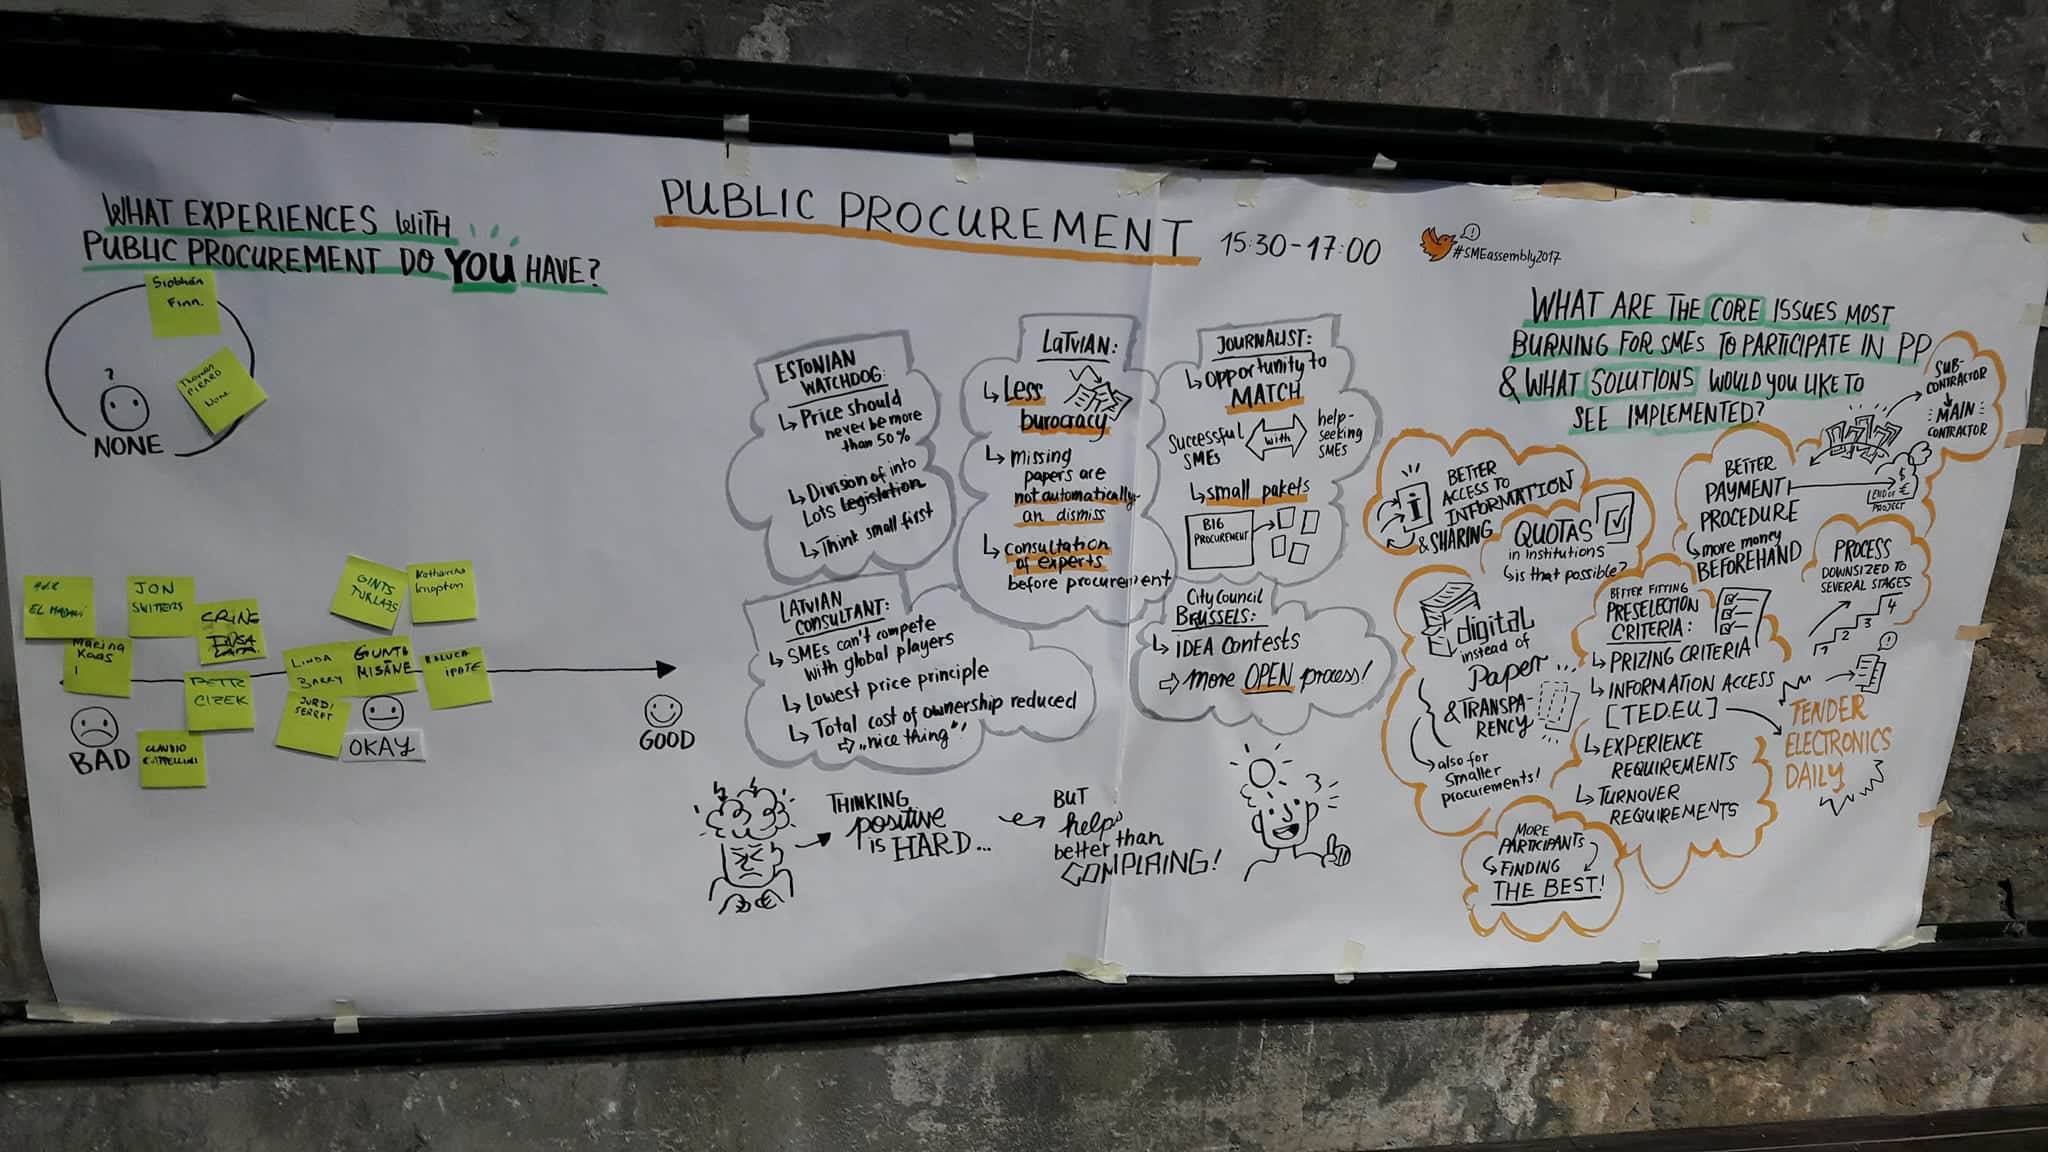 PUBLIC PROCUREMENT
15:30-17:00
#SMEassembly2017
WHAT EXPERIENCES WITH
PUBLIC PROCUREMENT DO YOU HAVE?
Siobhán
Finn.
Thomas
PIRARD
None
?
NONE
EL MADANI
JON
SWITTERS
CRINE
Marina
Kaas
PETR
CIZEK
LINDA
BARRY
JORDI
SERRET
GINTS
TURLAJS
Katharina
Knapton
GUNTA
MISĀNE
RALUCA
IPATE
CLAUDIO
CAPPELLINI
BAD
OKAY
GOOD
ESTONIAN
WATCHDOG:
Price should
never be more
than 50%
Divison of into
Lots Legislation
Think small first
LATVIAN:
Less
burocracy
missing
papers are
not automatically
an dismiss
consultation
of experts
before procurement
JOURNALIST:
opportunity to
MATCH
Successful
SMEs
with
help-
seeking
SMEs
small pakets
BIG
PROCUREMENT
LATVIAN
CONSULTANT:
SMEs can't compete
with global players
Lowest price principle
Total cost of ownership reduced
⇨ „nice thing"
City Council
BRUSSELS:
IDEA contests
⇨ more OPEN process!
THINKING
positive
is HARD...
BUT
helps
better than
COMPLAINING!
WHAT ARE THE CORE ISSUES MOST
BURNING FOR SMEs TO PARTICIPATE IN PP
& WHAT SOLUTIONS WOULD YOU LIKE TO
SEE IMPLEMENTED?
i
BETTER
ACCESS TO
INFORMATION
& SHARING
QUOTAS
in Institutions
is that possible?
BETTER
PAYMENT
PROCEDURE
more money
BEFOREHAND
SUB-
CONTRACTOR
MAIN
CONTRACTOR
$
€
END OF
PROJECT
PROCESS
DOWNSIZED TO
SEVERAL STAGES
1 2 3 4
digital
instead of
Paper...
& TRANSPA-
RENCY
also for
smaller
procurements!
BETTER FITTING
PRESELECTION
CRITERIA:
PRIZING CRITERIA
INFORMATION ACCESS
[TED.EU]
EXPERIENCE
REQUIREMENTS
TURNOVER
REQUIREMENTS
TENDER
ELECTRONICS
DAILY
MORE
PARTICIPANTS
FINDING
THE BEST!